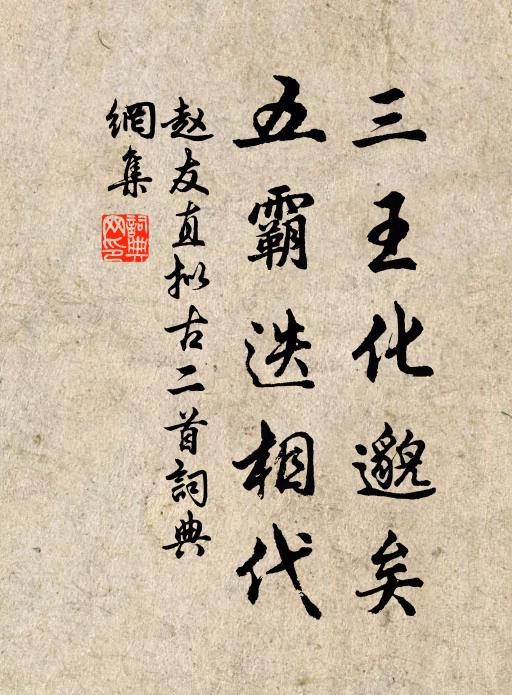 三王化邈矣
五霸迭相代
赵友直拟古二首詞典
網集
詞典
网印